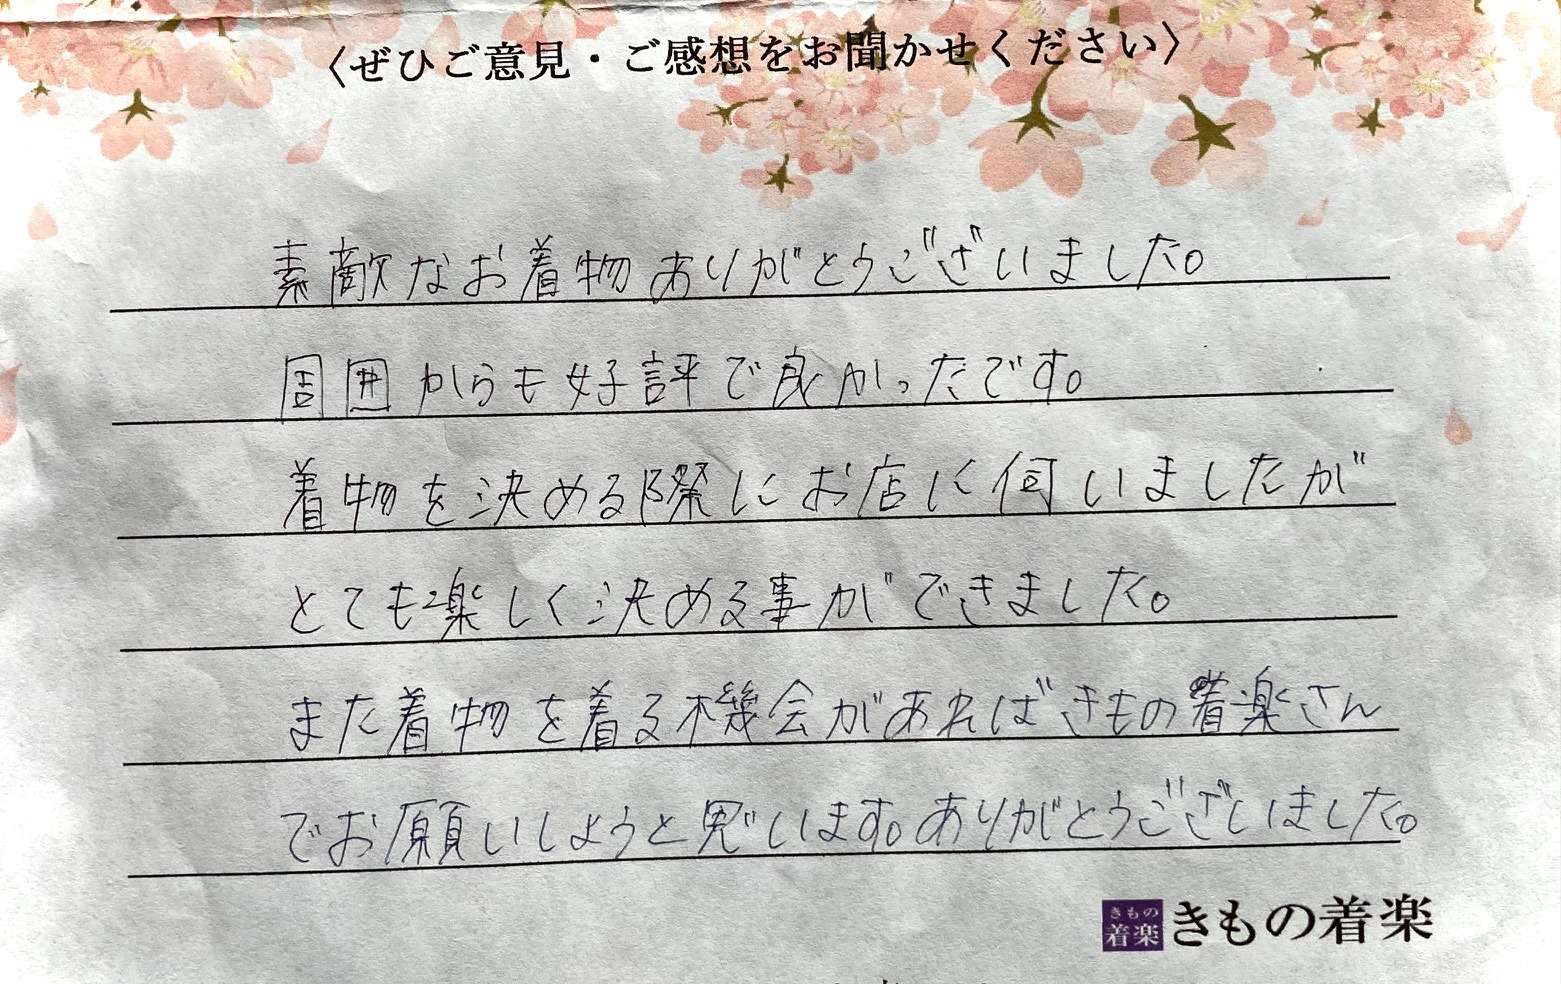 〈ぜひご意見・ご感想をお聞かせください〉
素敵なお着物ありがとうございました。
周囲からも好評で良かったです。
着物を決める際にお店に伺いましたが
とても楽しく決める事ができました。
また着物を着る機会があればきもの着楽さん
でお願いしようと思います。ありがとうございました。
きもの
着楽
きもの着楽